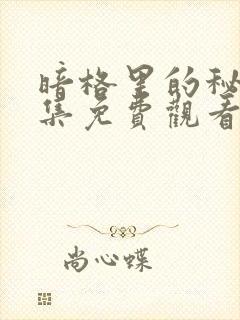 暗格里的秘
集免費觀看
尚心蝶